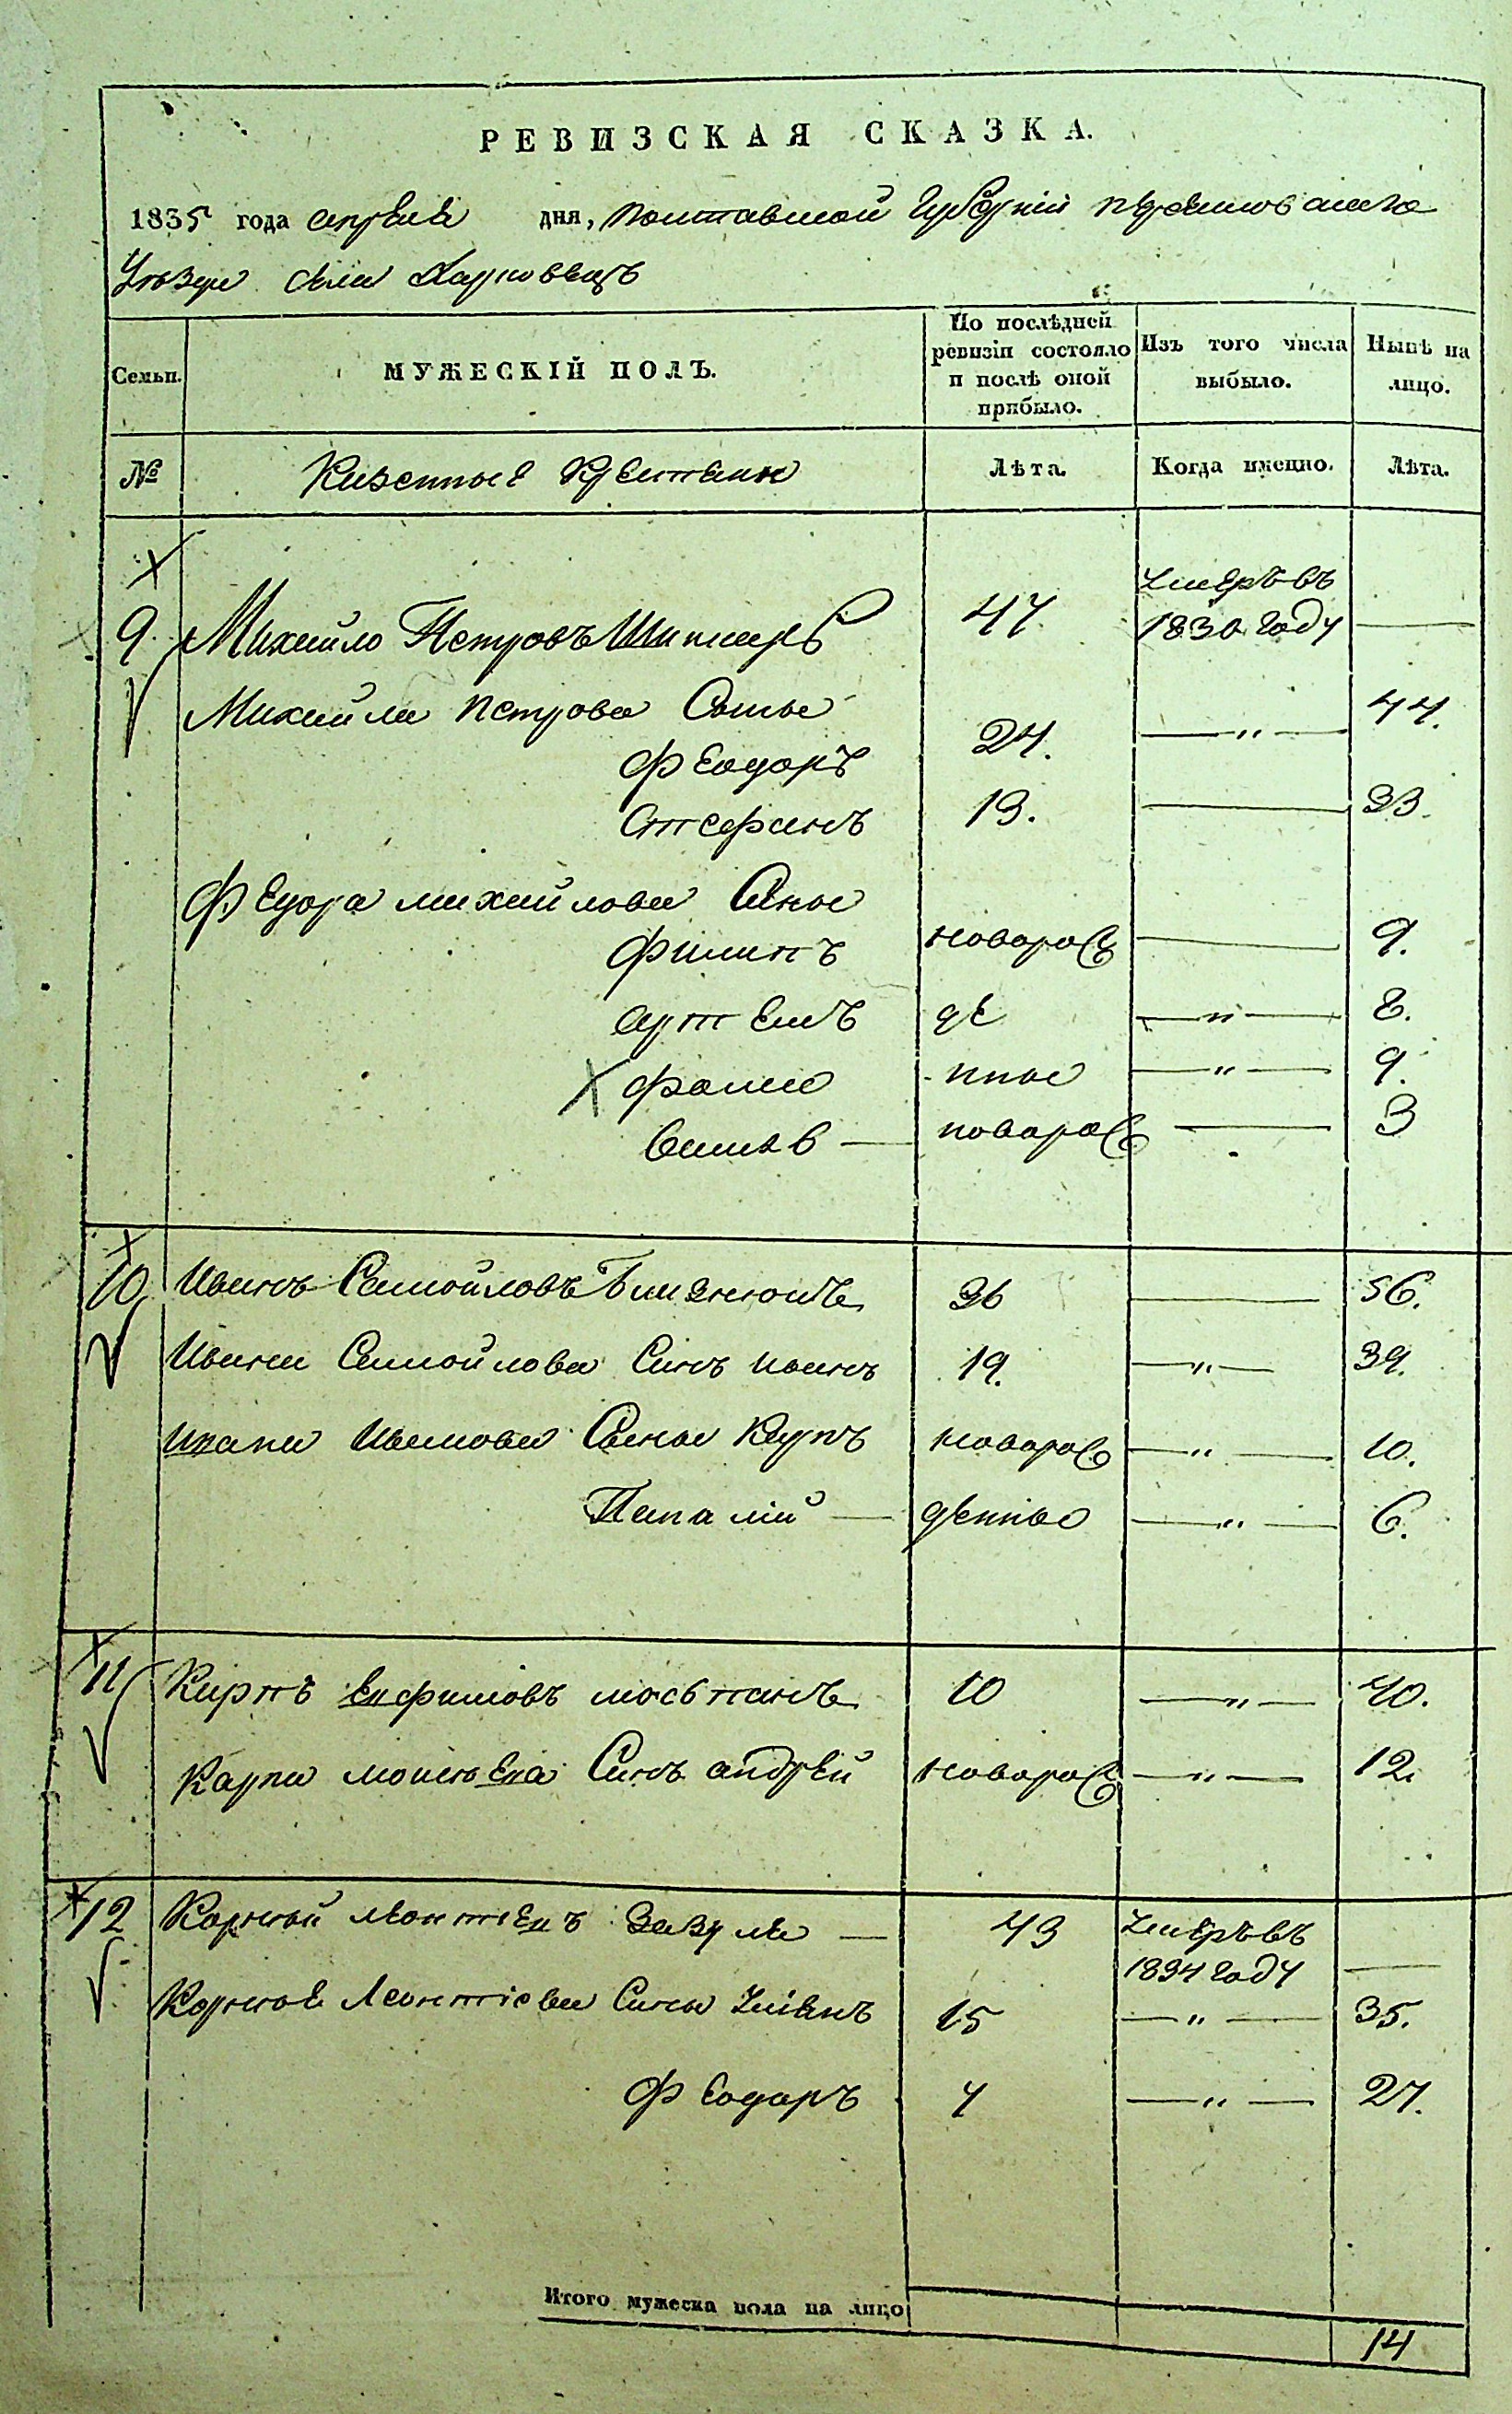 РЕВИЗСКАЯ СКАЗКА.
1835 года апреля дня, Полтавской Губернїи переяславскаго
Уѣзда села Харковецъ
Семьи.
МУЖЕСКІЙ ПОЛЪ.
По послѣдней ревизіи состояло и послѣ оной прибыло.
Изъ того числа выбыло.
Нынѣ на лицо.
№ Казенные Крестяне Лѣта. Когда именно. Лѣта.
9 Михайло Петровъ 47 умеръ въ 1830 году
Михайла петрова Сыны
Феодоръ 24. 44.
Стефанъ 13. 33.
Федора михайлова Сыны
Филипъ новорож 9.
артемъ де 8.
Фома нные 9.
новорож 3
10 Иванъ Самойловъ Близнюкъ 36 56.
Ивана Самойлова Синъ иванъ 19. 39.
ивана Иванова Сыны Карпъ новорож 10.
денные 6.
11 Карпъ 10 40.
Карпа Синъ андрей новорож 12.
12 Корнѣй леонтіевъ Зазуля 43 умеръ въ 1834 году
Корнѣя Леонтіева Сины 15 35.
Феодаръ 7 27.
Итого мужеска пола на лицо 14